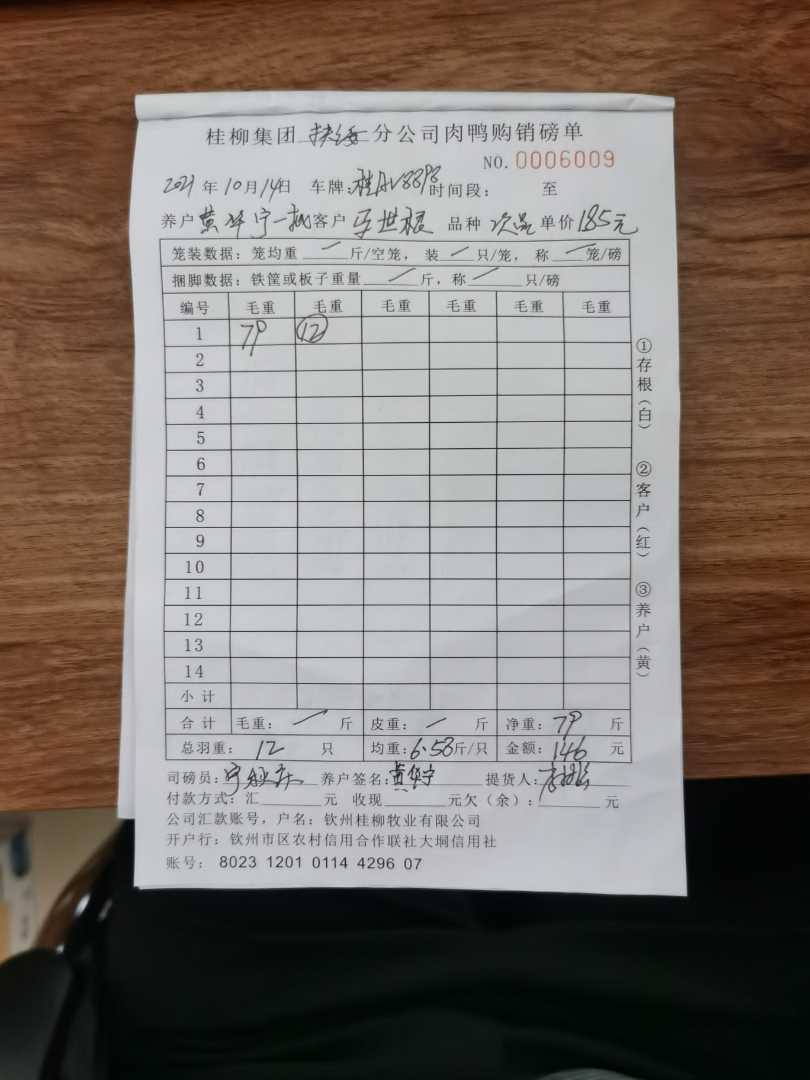 桂柳集团扶绥分公司肉鸭购销磅单
NO. 0006009
2021年10月14日 车牌:桂AV8898 时间段: 至
养户黄华宁一批客户 品种 次品 单价1.85元
笼装数据: 笼均重 / 斤/空笼, 装 / 只/笼, 称 / 笼/磅
捆脚数据: 铁筐或板子重量 / 斤, 称 / 只/磅
编号 毛重 毛重 毛重 毛重 毛重 毛重
1 79 12
2
3
4
5
6
7
8
9
10
11
12
13
14
小计
合计 毛重: / 斤 皮重: / 斤 净重: 79 斤
总羽重: 12 只 均重:6.58斤/只 金额: 146 元
司磅员: 养户签名:黄华宁 提货人:
付款方式: 汇 元 收现 元欠(余): 元
公司汇款账号, 户名: 钦州桂柳牧业有限公司
开户行: 钦州市区农村信用合作联社大垌信用社
账号: 8023 1201 0114 4296 07
①存根(白) ②客户(红) ③养户(黄)